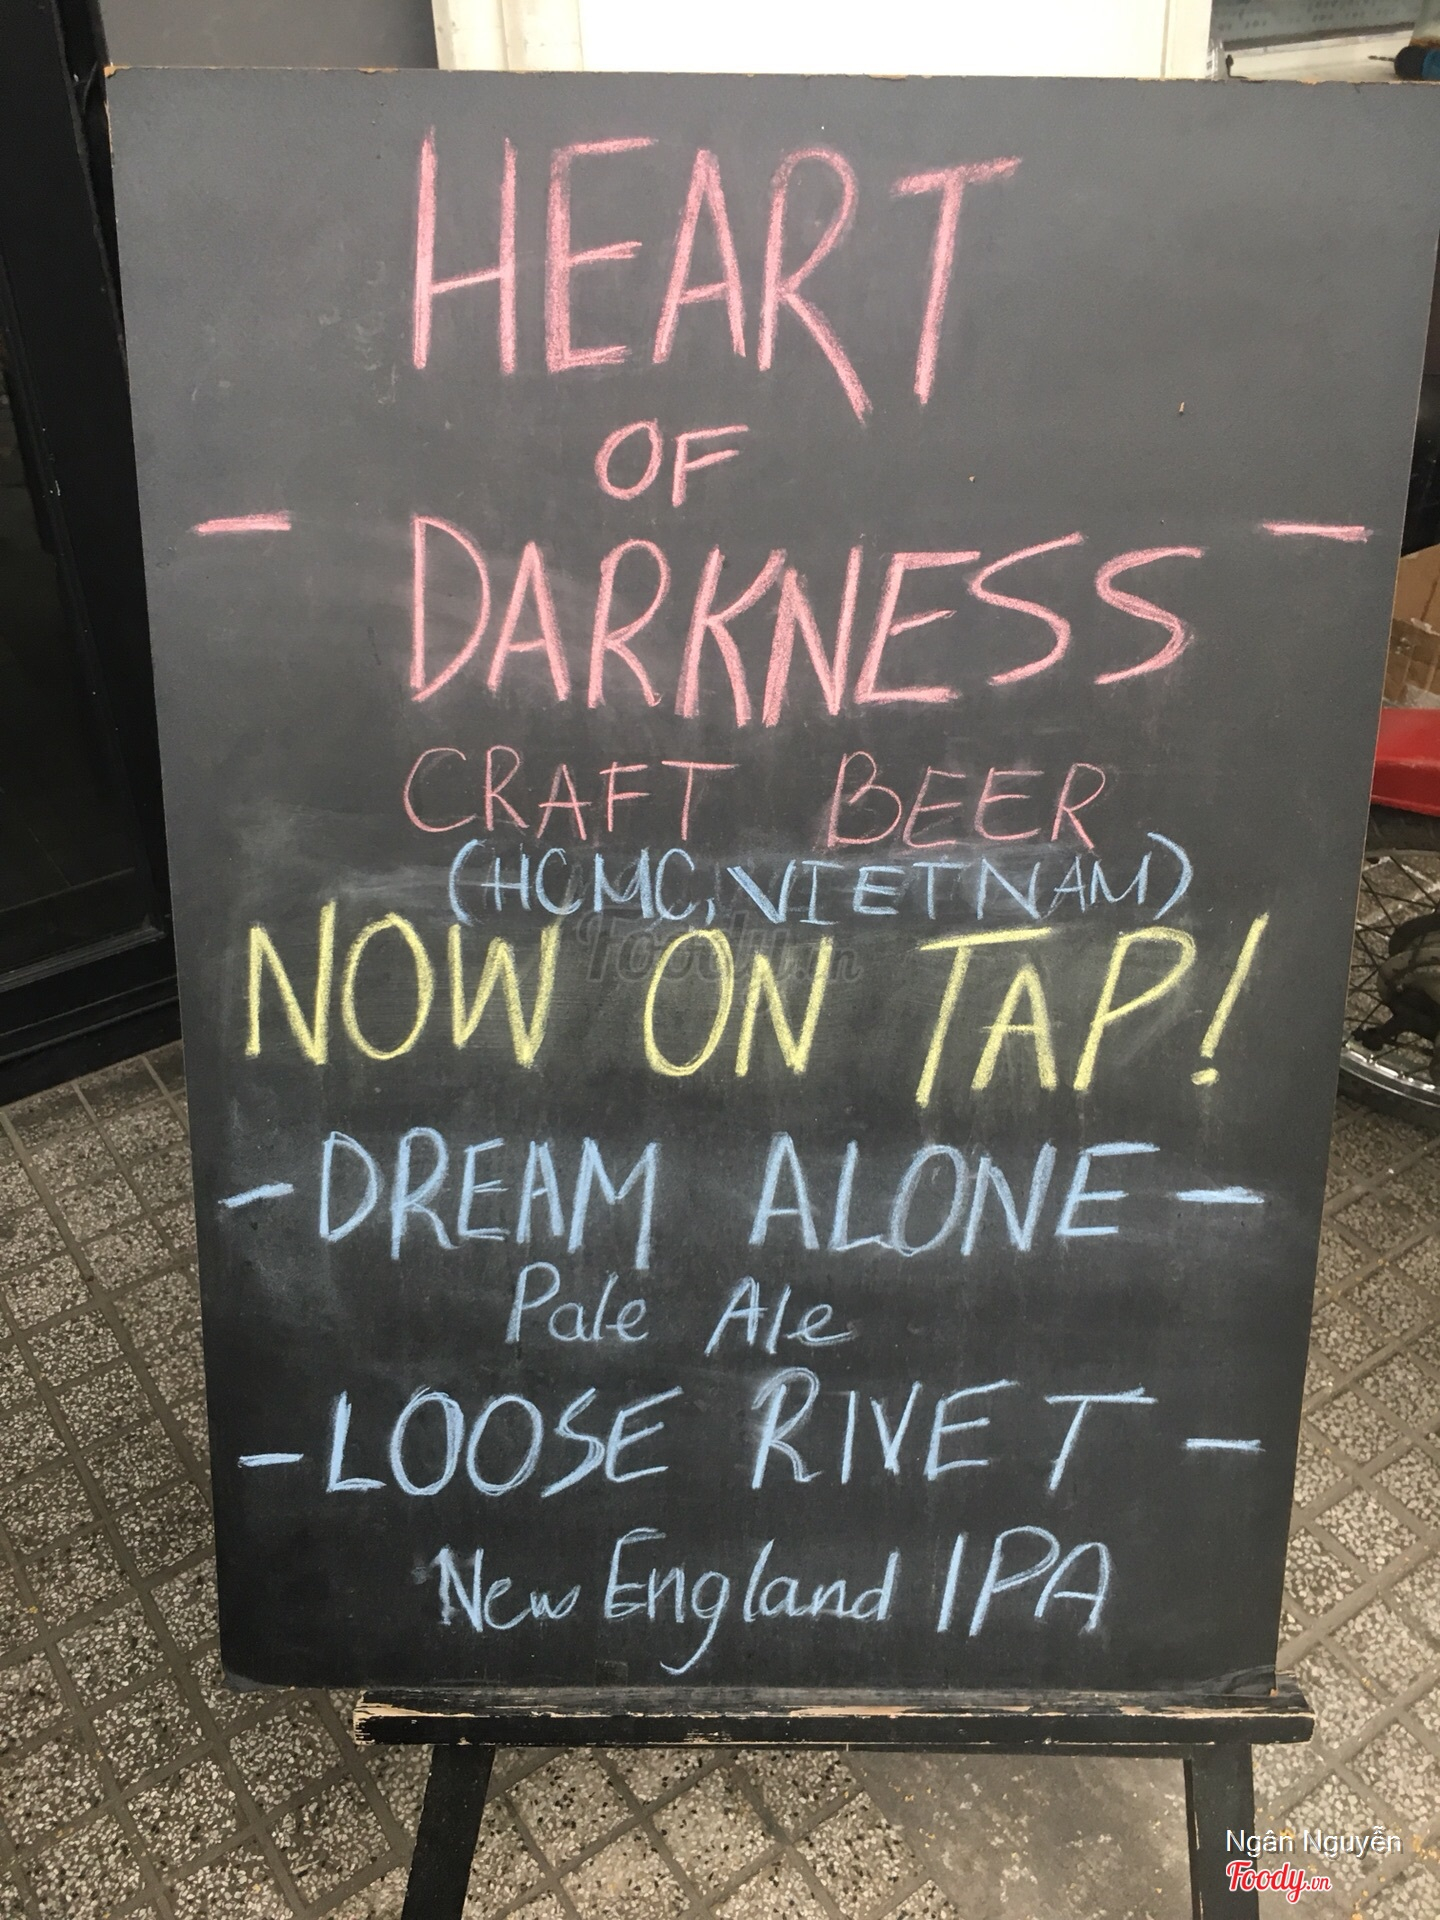 HEART
OF
- DARKNESS -
CRAFT BEER
(HCMC, VIETNAM)
NOW ON TAP!
- DREAM ALONE -
Pale Ale
- LOOSE RIVET -
New England IPA
Foody.vn
Ngân Nguyễn
Foody.vn